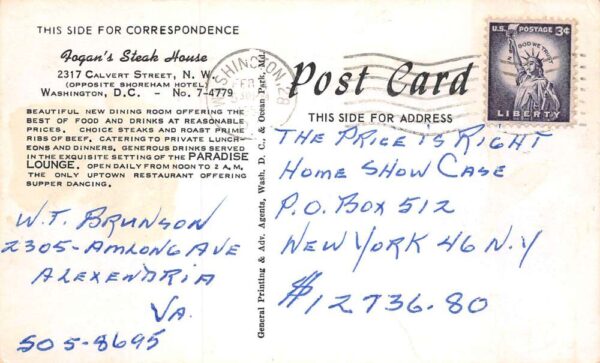 THIS SIDE FOR CORRESPONDENCE
Fogan's Steak House
2317 CALVERT STREET, N. W.
(OPPOSITE SHOREHAM HOTEL)
WASHINGTON, D.C. - NO. 7-4779
BEAUTIFUL NEW DINING ROOM OFFERING THE
BEST OF FOOD AND DRINKS AT REASONABLE
PRICES. CHOICE STEAKS AND ROAST PRIME
RIBS OF BEEF. CATERING TO PRIVATE LUNCH-
EONS AND DINNERS. GENEROUS DRINKS SERVED
IN THE EXQUISITE SETTING OF THE PARADISE
LOUNGE. OPEN DAILY FROM NOON TO 2 A.M.
THE ONLY UPTOWN RESTAURANT OFFERING
SUPPER DANCING.
W.T. BRUNSON
2305-AMLONG AVE
ALEXENDRIA
VA.
SO 5-8695
General Printing & Adv. Agents, Wash. D. C., & Ocean Park, Md.
WASHINGTON
FEB
Post Card
THIS SIDE FOR ADDRESS
U.S. POSTAGE 3¢
IN GOD WE TRUST
LIBERTY
THE PRICE IS RIGHT
HOME SHOW CASE
P.O. BOX 512
NEW YORK 46 N.Y
$12736.80